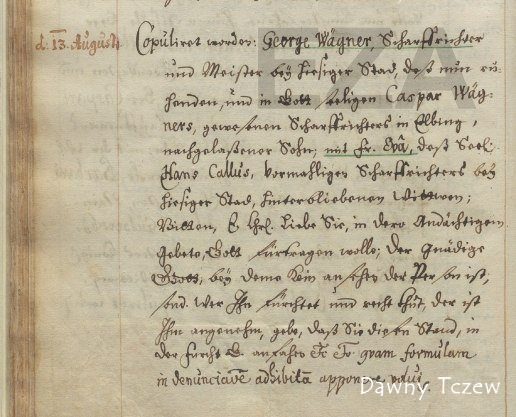 d. 13. Augusti
Copuliret worden: George Wägner, Scharffrichter
und Meister beÿ hiesiger Stad, deß nun ru-
henden, und in Gott seeligen Caspar Wäg-
ners, gewesenen Scharffrichters in Elbing,
nachgelaßener Sohn; mit Fr. Evâ, deß Seel:
Hans Callus, Vormahligen Scharffrichters beÿ
hiesiger Stad, hinterbliebenen Wittwen;
Bitten, E. Chrl. Liebe Sie, in dero Andächtigem
Gebete, Gott fürtragen wolle; Der Gnädige
Gott, beÿ deme Kein ansehen der Person ist,
sond. Wer Ihn fürchtet und recht thut, der ist
Ihm angenehm, gebe, daß Sie diesen Stand, in
der furcht G. anfahen &c &c quam formulam
in denunciatiõe adhibitã apponere volui.
Dawny Tczew